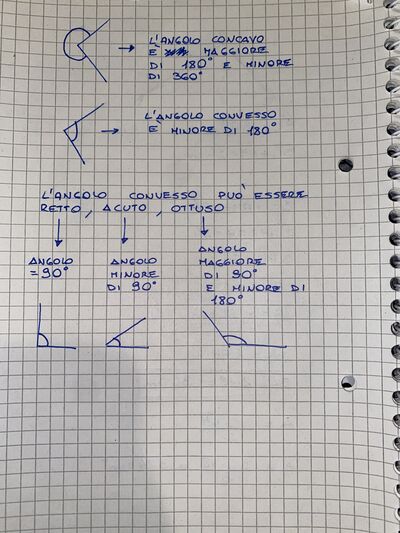 L'ANGOLO CONCAVO
È MAGGIORE
DI 180° E MINORE
DI 360°
L'ANGOLO CONVESSO
È MINORE DI 180°
L'ANGOLO CONVESSO PUÒ ESSERE
RETTO, ACUTO, OTTUSO
ANGOLO
= 90°
ANGOLO
MINORE
DI 90°
ANGOLO
MAGGIORE
DI 90°
E MINORE DI
180°